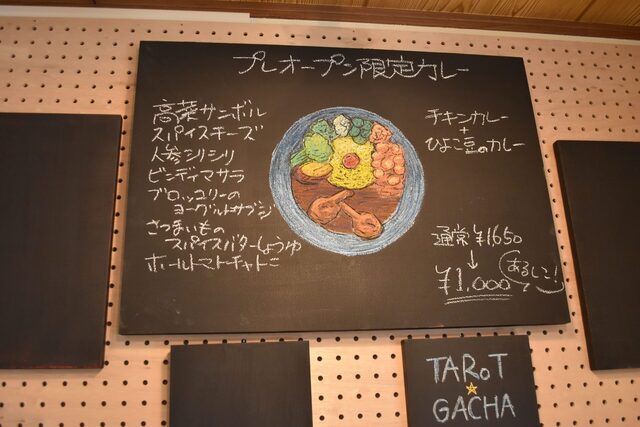 プレオープン限定カレー
高菜サンボル
スパイスチーズ
人参シリシリ
ビンディマサラ
ブロッコリーの
ヨーグルトサブジ
さつまいもの
スパイスバターしょうゆ
ホールトマトチャトニ
チキンカレー
+
ひよこ豆のカレー
通常¥1650
↓
¥1,000
TAROT
GACHA